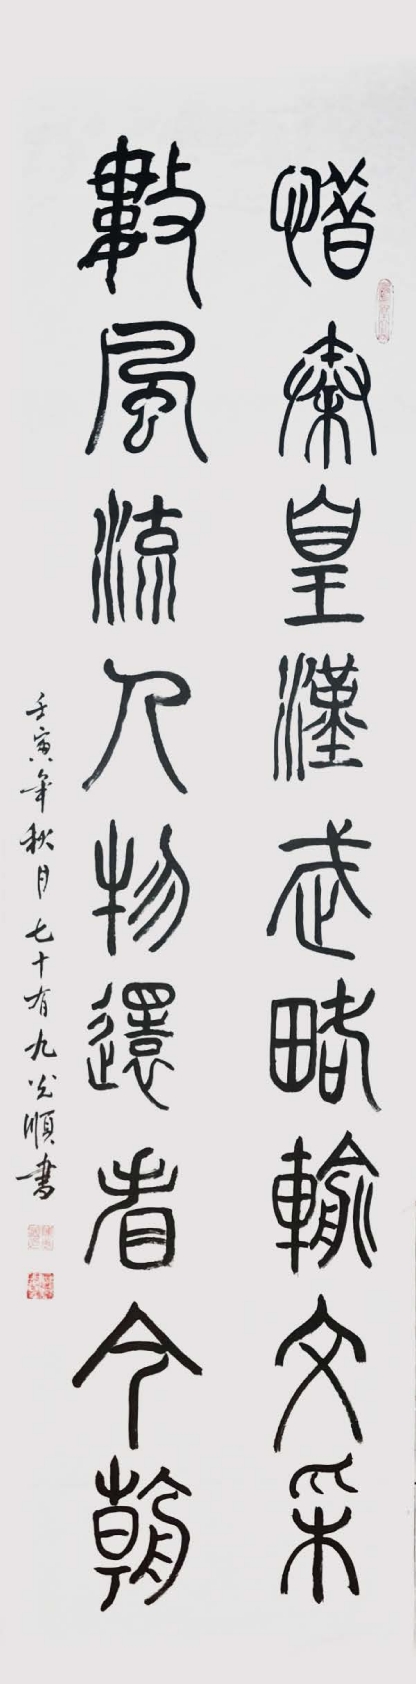 惜秦皇漢武略輸文采
數風流人物還看今朝
壬寅年秋月七十有九光順書